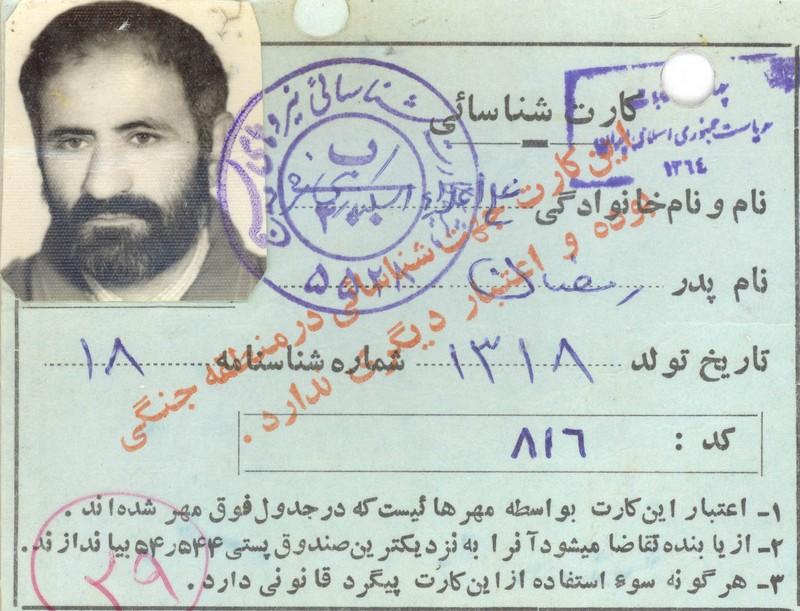 کارت شناسائی
ریاست جمهوری اسلامی ایران
۱۳۶۴
شناسائی نیروهای
نام و نام خانوادگی علی
نام پدر رمضان
۵۵۲۸
تاریخ تولد ۱۳۱۸ شماره شناسنامه ۱۸
این کارت جهت شناسائی در منطقه جنگی
بوده و اعتبار دیگری ندارد.
کد : ۸۱۶
۱- اعتبار این کارت بواسطه مهرهائیست که در جدول فوق مهر شده اند.
۲- از یابنده تقاضا میشود آنرا به نزدیکترین صندوق پستی ۵۴۴ر۵۴ بیاندازند.
۳- هرگونه سوء استفاده از این کارت پیگرد قانونی دارد.
۲۹